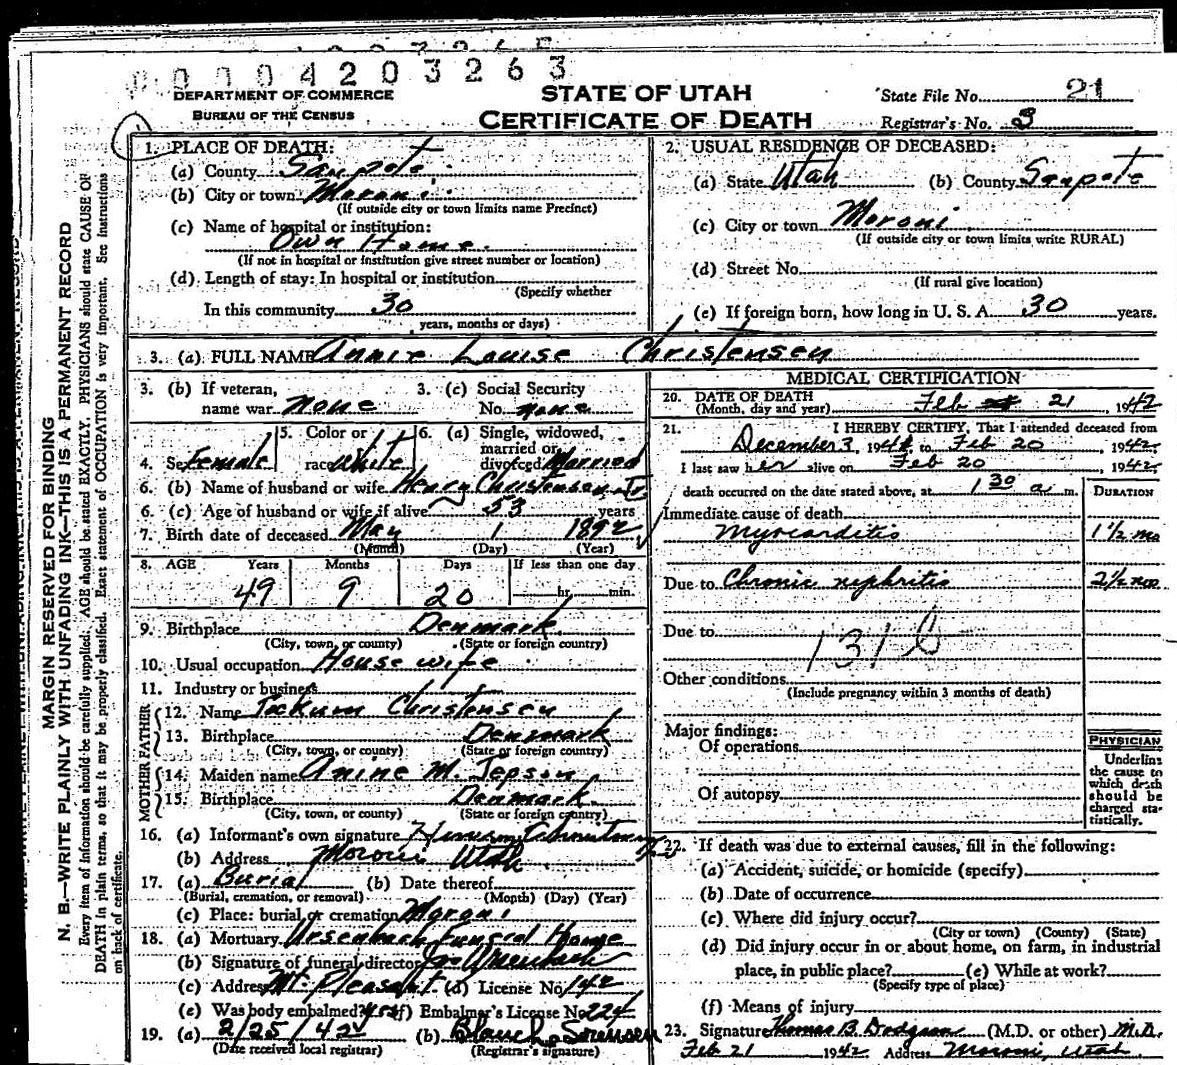 0004203263
DEPARTMENT OF COMMERCE
BUREAU OF THE CENSUS
STATE OF UTAH
CERTIFICATE OF DEATH
State File No. 21
Registrar's No. 3
MARGIN RESERVED FOR BINDING
N. B.—WRITE PLAINLY WITH UNFADING INK—THIS IS A PERMANENT RECORD
Every item of information should be carefully supplied. AGE should be stated EXACTLY. PHYSICIANS should state CAUSE OF
DEATH in plain terms, so that it may be properly classified. Exact statement of OCCUPATION is very important. See instructions
on back of certificate.
1. PLACE OF DEATH:
(a) County Sanpete
(b) City or town Moroni
(If outside city or town limits name Precinct)
(c) Name of hospital or institution:
Own Home
(If not in hospital or institution give street number or location)
(d) Length of stay: In hospital or institution
(Specify whether
In this community 30
years, months or days)
2. USUAL RESIDENCE OF DECEASED:
(a) State Utah (b) County Sanpete
(c) City or town Moroni
(If outside city or town limits write RURAL)
(d) Street No.
(If rural give location)
(e) If foreign born, how long in U. S. A. 30 years.
3. (a) FULL NAME Annie Louise Christensen
3. (b) If veteran, name war none
3. (c) Social Security No. none
4. Sex Female
5. Color or race White
6. (a) Single, widowed, married or divorced Married
6. (b) Name of husband or wife Henry Christensen Jr.
6. (c) Age of husband or wife if alive 53 years
7. Birth date of deceased May 1 1892
(Month) (Day) (Year)
8. AGE Years Months Days If less than one day
49 9 20 hr. min.
9. Birthplace Denmark
(City, town, or county) (State or foreign country)
10. Usual occupation House wife
11. Industry or business
FATHER
12. Name Christensen
13. Birthplace Denmark
(City, town, or county) (State or foreign country)
MOTHER
14. Maiden name Anine M. Jepson
15. Birthplace Denmark
(City, town, or county) (State or foreign country)
16. (a) Informant's own signature
(b) Address Moroni Utah
17. (a) Burial (b) Date thereof
(Burial, cremation, or removal) (Month) (Day) (Year)
(c) Place: burial or cremation Moroni
18. (a) Mortuary Ursenbach Funeral Home
(b) Signature of funeral director Ursenbach
(c) Address Mt. Pleasant (d) License No. 142
(e) Was body embalmed? yes (f) Embalmer's License No. 224
19. (a) 2/25/42 (b) Blanch Sorensen
(Date received local registrar) (Registrar's signature)
MEDICAL CERTIFICATION
20. DATE OF DEATH
(Month, day and year) Feb 21, 1942
21. I HEREBY CERTIFY, That I attended deceased from
December 3, 1941, to Feb 20, 1942,
I last saw her alive on Feb 20, 1942,
death occurred on the date stated above, at 1 30 a m.
DURATION
Immediate cause of death
Myocarditis 1 1/2 mo
Due to Chronic nephritis 2 1/2 mos
Due to
131 b
Other conditions
(Include pregnancy within 3 months of death)
Major findings:
Of operations
Of autopsy
PHYSICIAN
Underline
the cause to
which death
should be
charged sta-
tistically.
22. If death was due to external causes, fill in the following:
(a) Accident, suicide, or homicide (specify)
(b) Date of occurrence
(c) Where did injury occur?
(City or town) (County) (State)
(d) Did injury occur in or about home, on farm, in industrial
place, in public place? (e) While at work?
(Specify type of place)
(f) Means of injury
23. Signature Thomas B. Dodgson (M.D. or other) M.D.
Feb 21 1942 Address Moroni, Utah